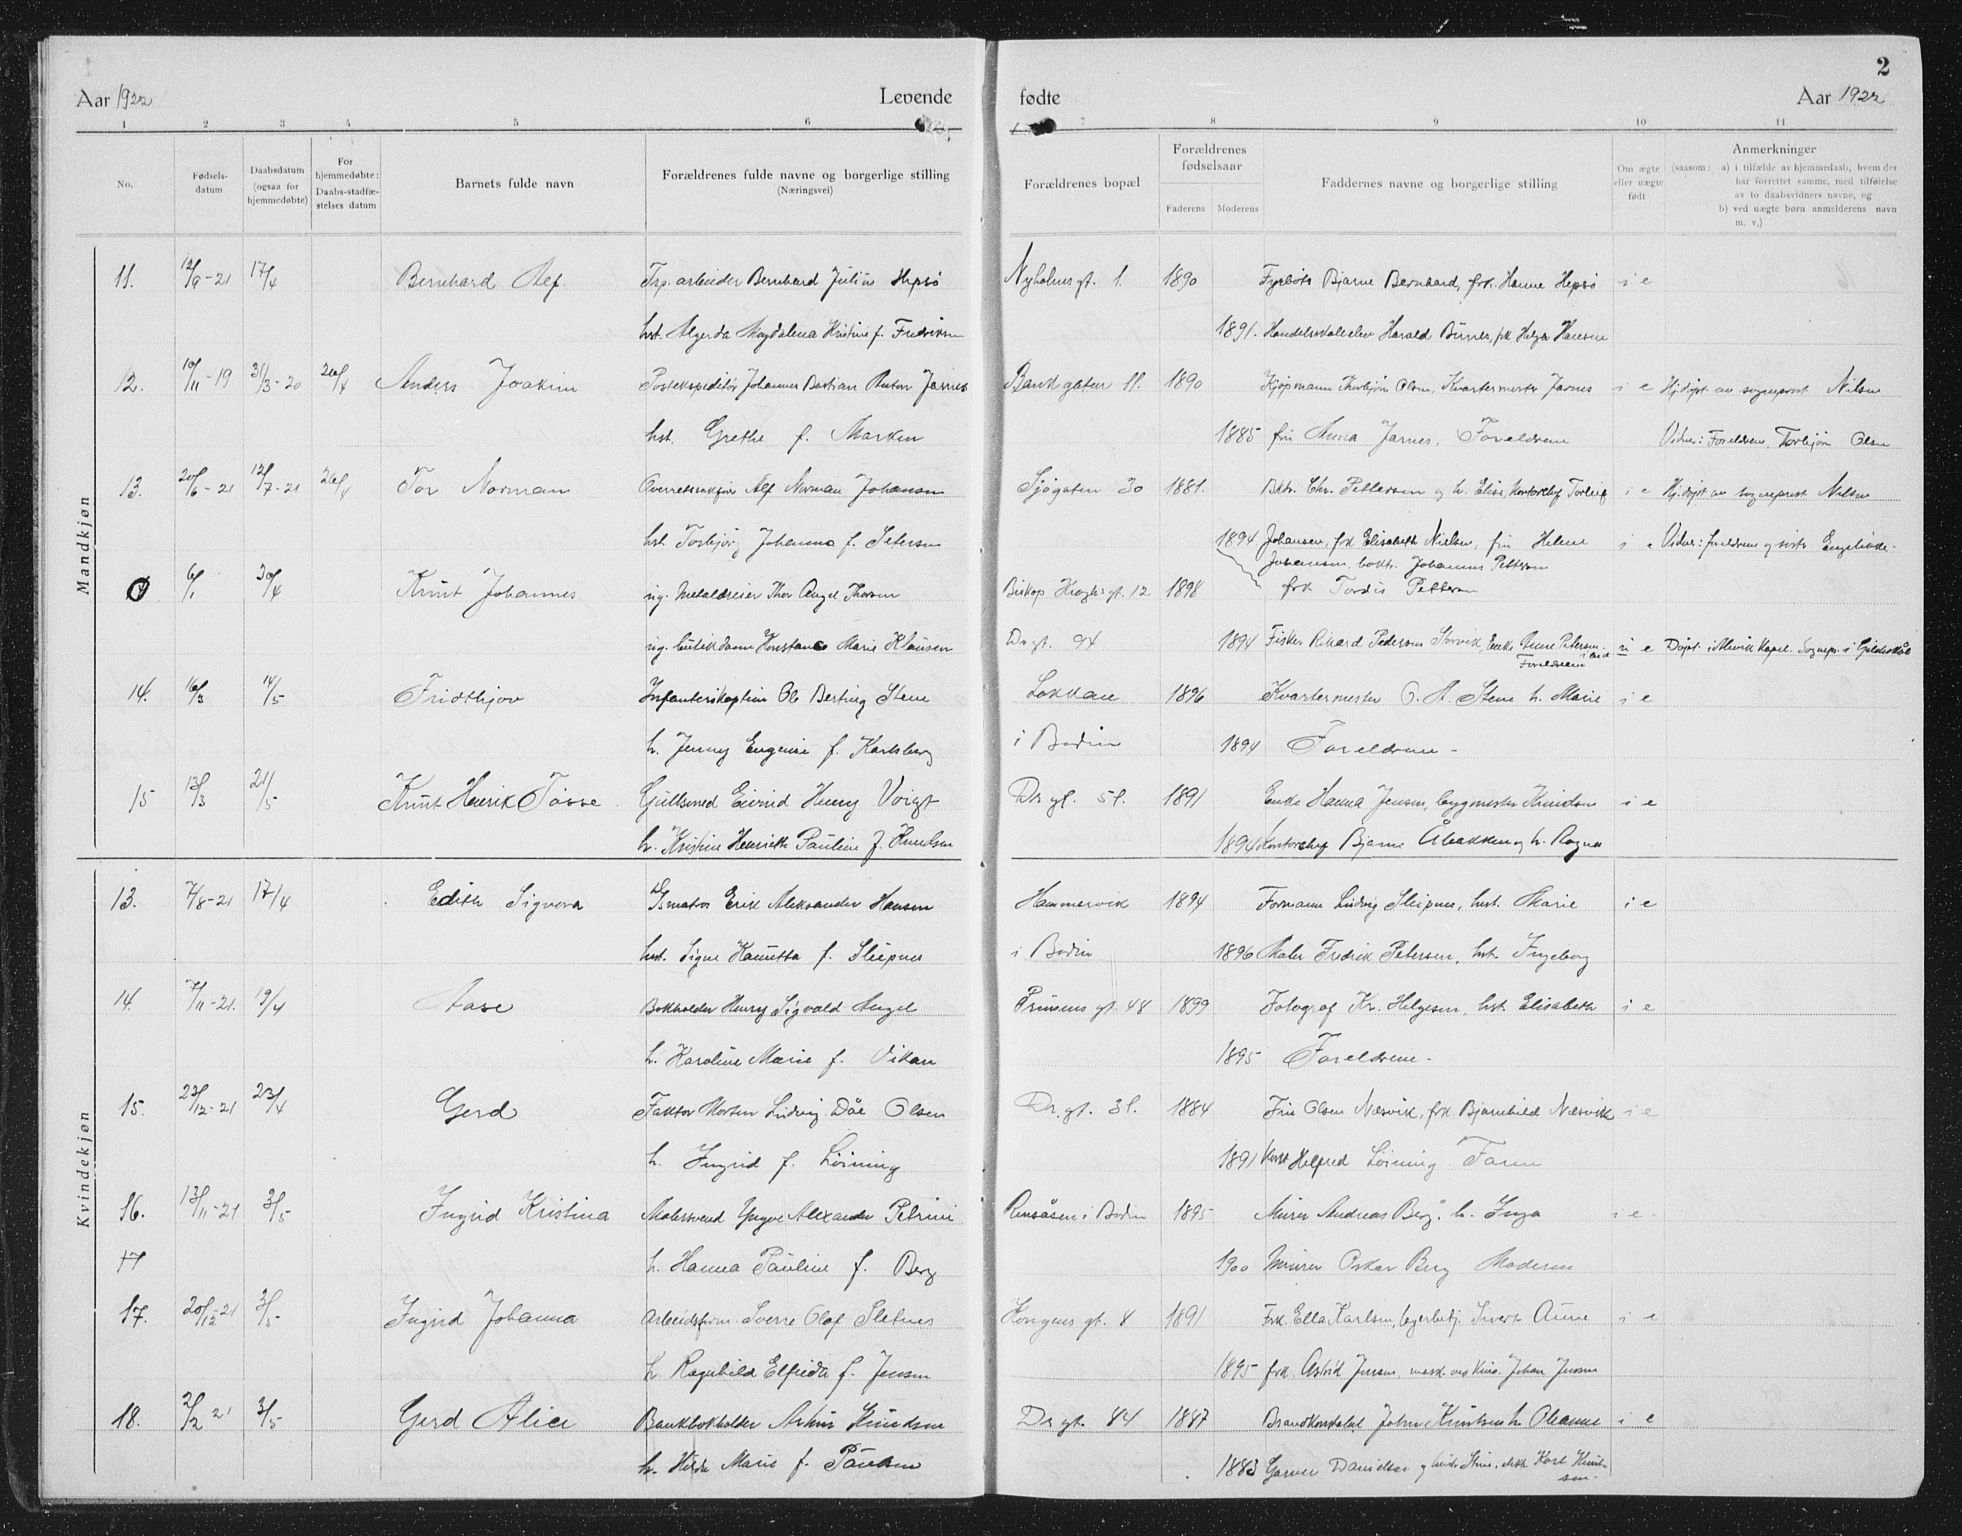 2
Aar 1922 Levende fødte Aar 1922
1 2 3 4 5 6 7 8 9 10 11
No.
Fødsels-
datum
Daabsdatum
(ogsaa for
hjemmedøbte)
For
hjemmedøbte:
Daabs-stadfæ-
stelses datum
Barnets fulde navn
Forældrenes fulde navne og borgerlige stilling
(Næringsvei)
Forældrenes bopæl
Forældrenes
fødselsaar
Faderens Moderens
Faddernes navne og borgerlige stilling
Om ægte
eller uægte
født
Anmerkninger
(saasom: a) i tilfælde av hjemmedaab, hvem der
har forrettet samme, med tilføielse
av to daabsvidners navne, og
b) ved uægte børn anmelderens navn
m. v.)
Mandkjøn
11. 12/9-21 17/4 Bernhard Alf. Trp. arbeider Bernhard Julius Hepsø Nyholmsgt. 1. 1890 Fyrbøter Bjarne Bernhard, frk. Hanne Hepsø i e
hst. Algerda Magdalena Kristine f. Fredriksen 1891. Harald frk Helga Hansen
12. 10/11-19 31/3-20 26/4 Anders Joakim Postekspeditør Johannes Bastian Anton Jarnes Bankgaten 11. 1890 Kjøpmann Thorbjørn Olsen, Kvartermester Jarnes i e Hj.døpt av sogneprest Nilsen
hst. Grethe f. Marken 1885 fru Anna Jarnes, Foreldrene Vidner: Foreldrene, Torbjørn Olsen
13. 20/6-21 12/7-21 26/4 Tor Norman Overretssakfører Alf Norman Johansen Sjøgaten 30 1881. Bktr. Chr. Pettersen og h. Elise, kontorchef Torleif i e Hj.døpt av sogneprest Nilsen
hst. Torbjørg Johanna f. Petersen 1894 Johansen, frk Elisabeth Nielsen, fru Helene i e Vidner: foreldrene og
Johansen, boktr. Johannes Pettersen
6/1 30/4 Knut Johannes ug. Metaldreier Thor Angel Thorsen Biskop Kroghs gt. 12 1898 frk Tordis Pettersen
ug. butikdame Konstance Marie Klausen Dr gt. 94 1894 Fisker Rikard Pedersen Storvik, Enke Anne Petersen u e Døpt i Mevik Kapel. Sognepr. i Gildeskål
Foreldrene
14. 16/3 14/5 Fridthjov Infanterikaptein Ole Berting Stene Løkkan 1896 Kvartermester O. A. Stene h. Marie i e
h. Jenny Eugenie f. Karlsberg i Bodin 1894 Foreldrene -
15 13/3 21/5 Knut Henrik Tosse Gullsmed Eivind Henry Voigt Dr gt. 51. 1891 Enke Hanna Jensen, bygmester Knudsen i e
h. Kristine Henriette Pauline f. Knudsen 1894 Kontorchef Bjarne Åbakken og h. Ragna
Kvindekjøn
13. 7/8-21 17/4 Edith Signora Erik Aleksander Hansen Hammervik 1894 Formann Ludvig Sleipnes, hst. Marie i e
hst. Signe Hanetta f. Sleipnes i Bodin 1896 Maler Fredrik Petersen, hst. Ingeborg
14. 7/11-21. 19/4 Aase Bokholder Henry Sigvald Angel Prinsens gt. 48 1899 Fotograf Kr. Helgesen, hst. Elisabeth i e
h. Karoline Marie f. Vikan 1895 Foreldrene -
15. 23/12-21 23/4 Gerd Faktor Morten Ludvig Dåe Olsen Dr. gt. 31. 1884 Fru Olsen Næsvik, frk. Bjarnhild Næsvik i e
h. Ingrid f. Løining 1891 Helfred Løining Faren
16. 13/11-21 3/5 Ingrid Kristina Malersvend Yngve Alexander Petrini Rensåsen i Bodin 1895 Murer Andreas Berg, h. Inga i e
17 h. Hanna Pauline f. Berg 1900 Murer Oskar Berg Moderen
17. 20/12-21 3/5 Ingrid Johanna Arbeidsform. Sverre Olaf Sletnes Kongens gt. 8 1891 Frk. Ella Karlsen, lagerbetj. Sivert Aune i e
h. Ragnhild Elfrida f. Jensen 1895 frk. Astrid Jensen, Johan Jensen
18. 2/2 21 3/5 Gerd Alice Bankbokholder Arthur Knudsen Dr gt. 84 1887 Brandkonstabel John Knutsen h. Oleanne i e
h. Hilda Marie f. Paulsen 1883 Garver Danielsen og Kort Knut-
sen.